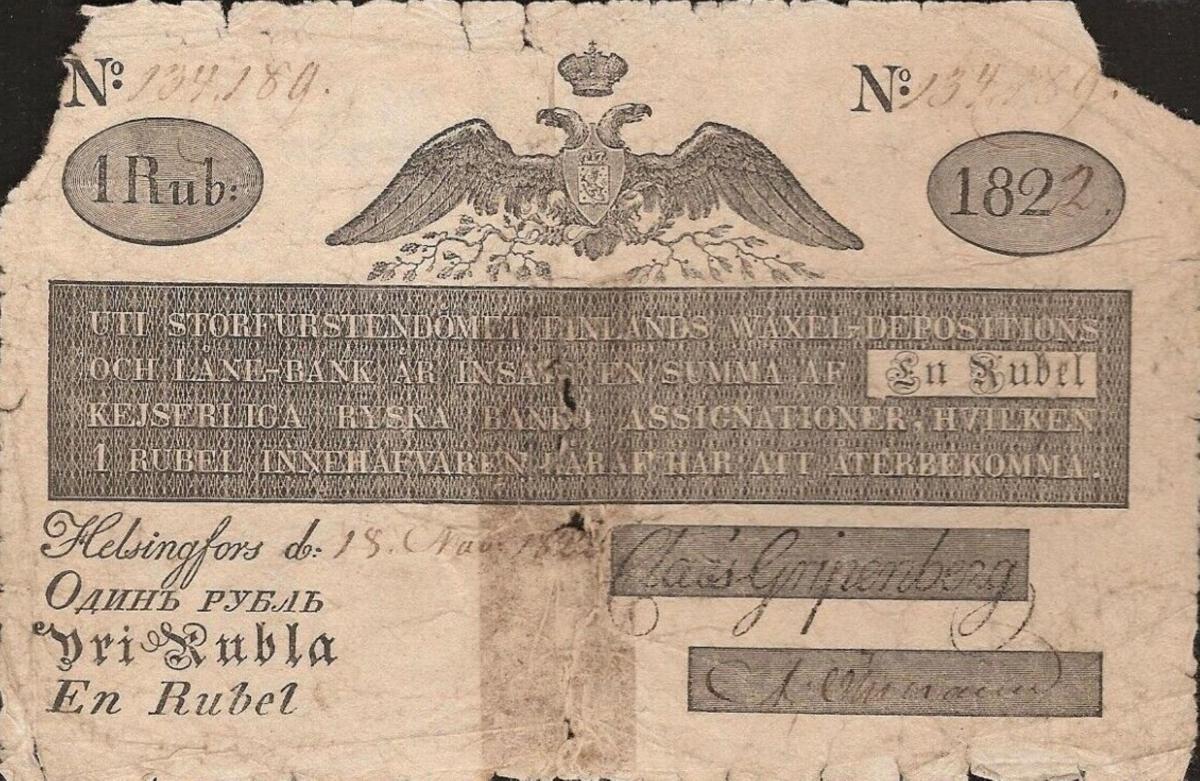 Nº: 134,189. Nº: 134,189.
1 Rub: 1822.
UTI STORFURSTENDÖMET FINLANDS WÄXEL-DEPOSITIONS
OCH LÅNE-BANK ÄR INSATT EN SUMMA AF En Rubel
KEJSERLIGA RYSKA BANKO ASSIGNATIONER, HVILKEN
1 RUBEL INNEHAFVAREN HÄRAF HAR ATT ÅTERBEKOMMA.
Helsingfors d: 18. Nov. 1822
Claäs Gripenberg
Одинъ рубль
Yri Rubla
En Rubel